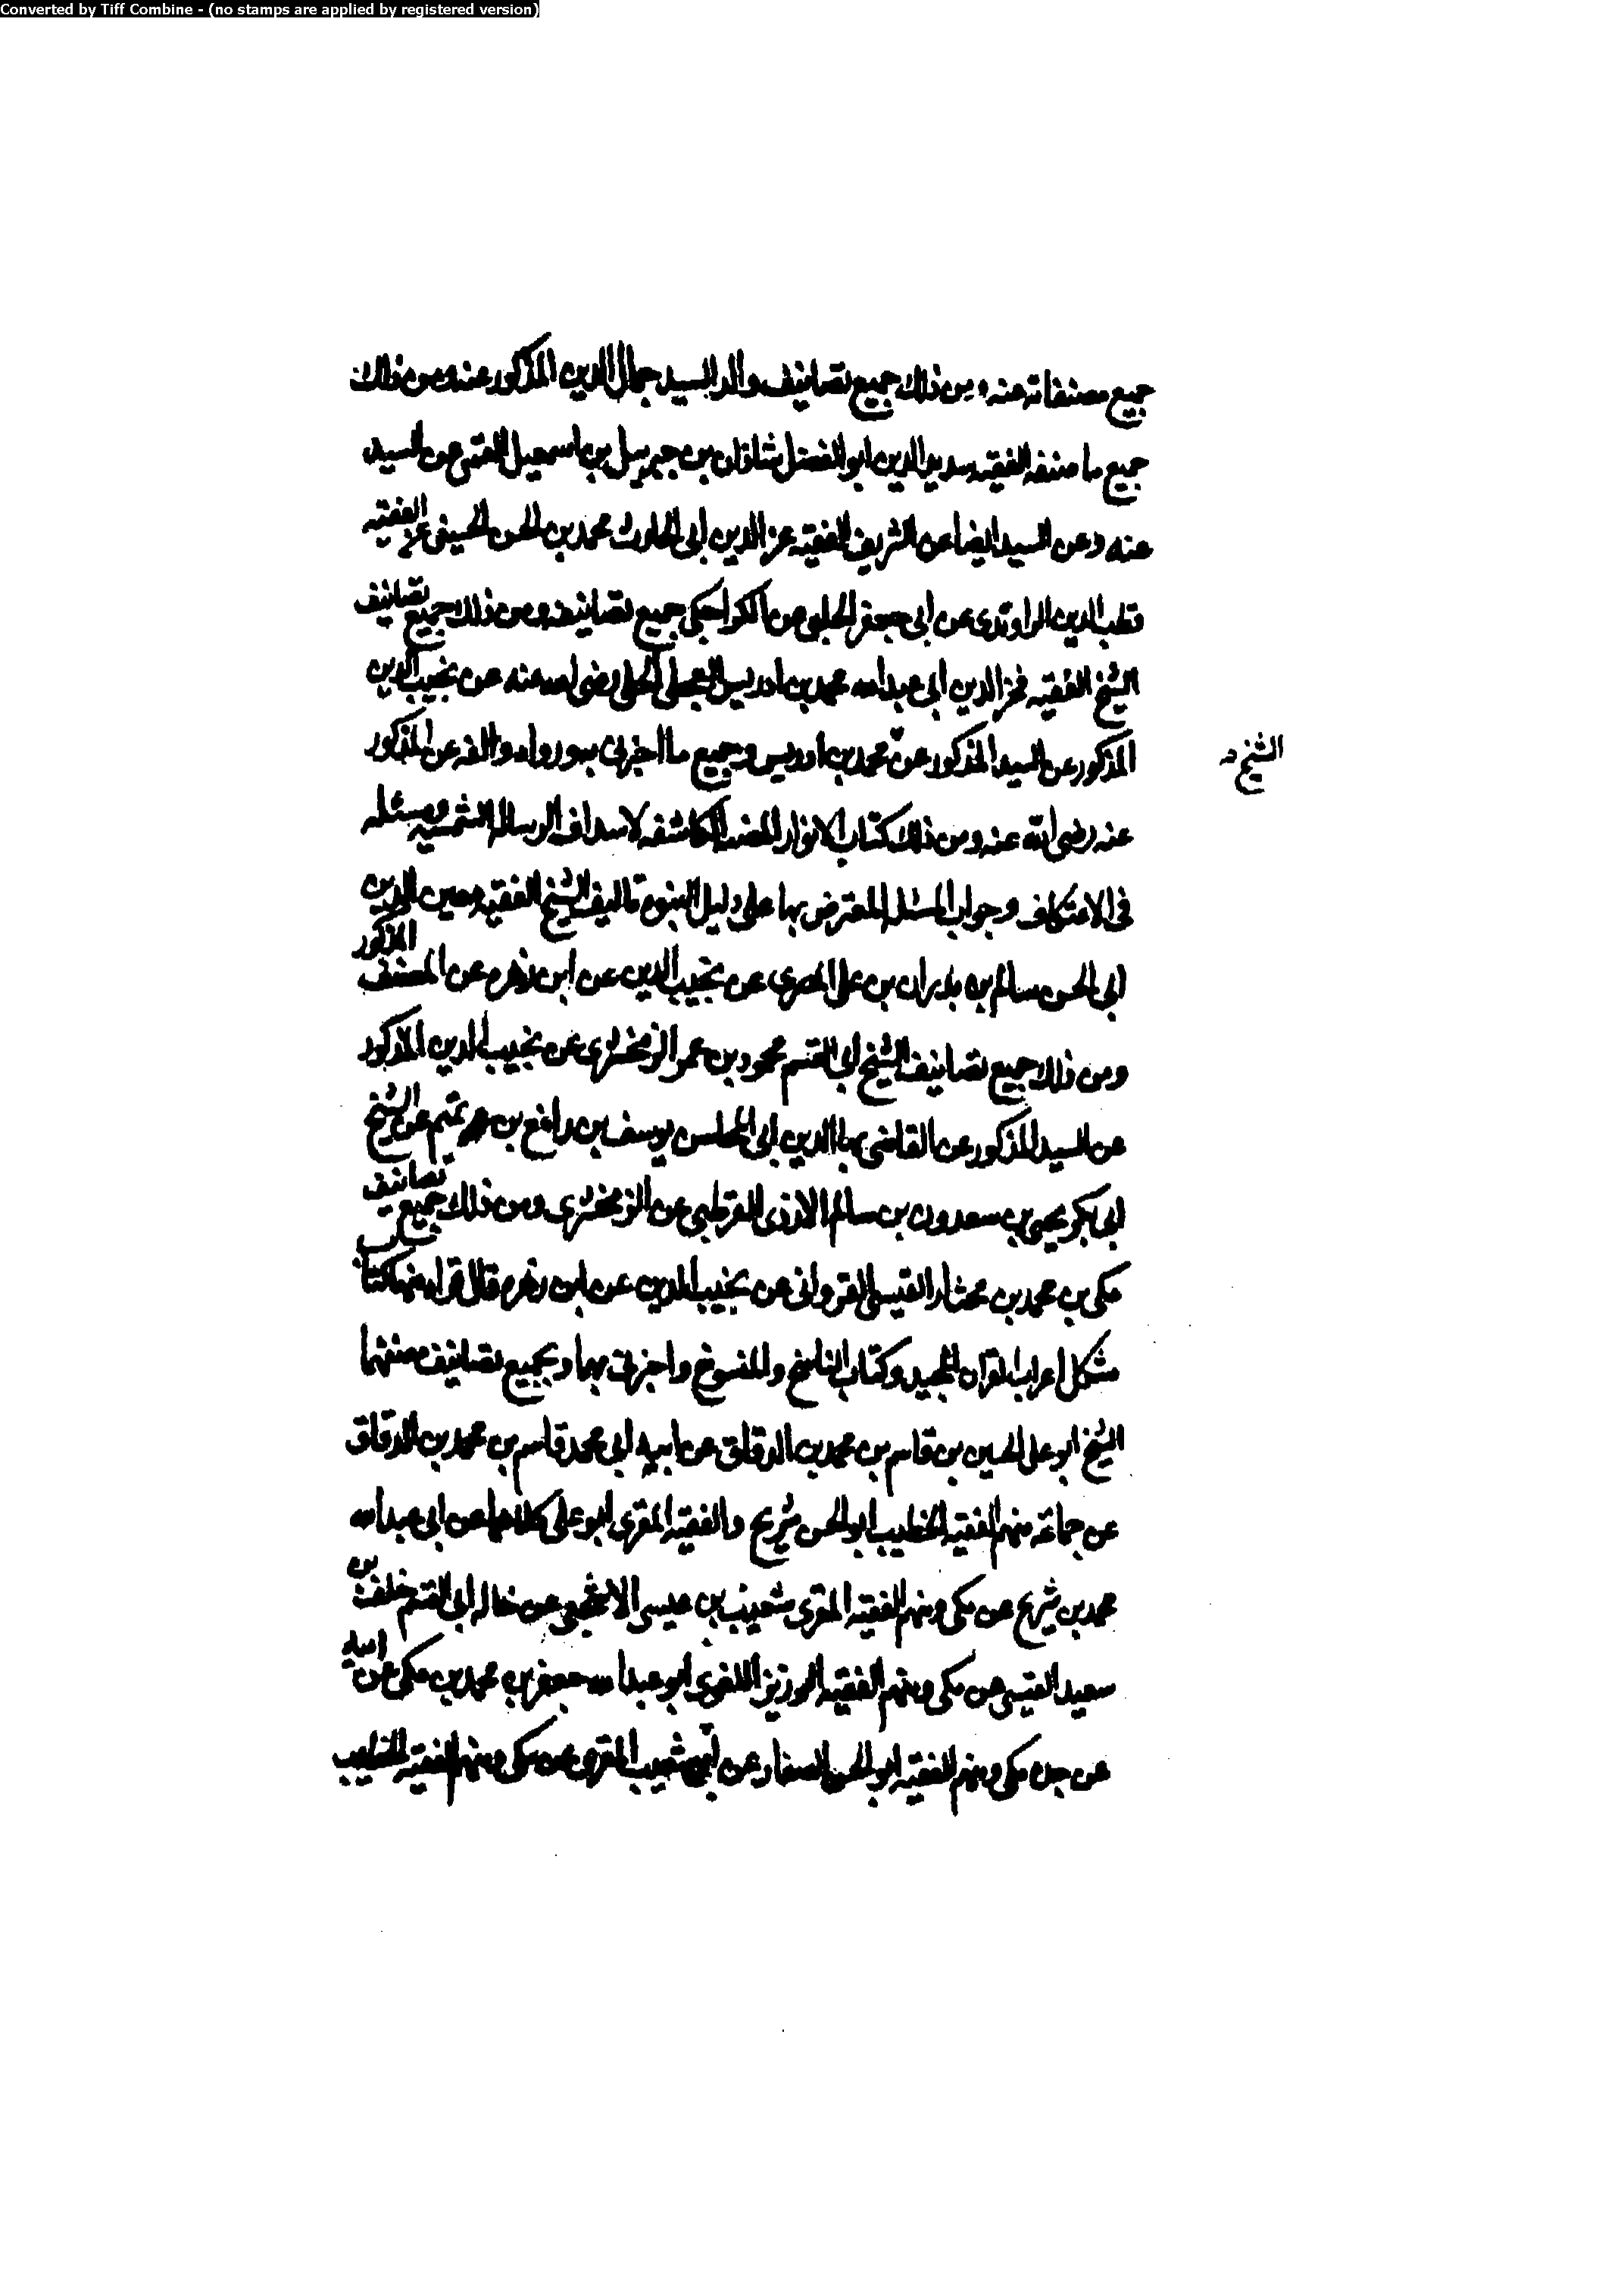 Converted by Tiff Combine - (no stamps are applied by registered version)
جميع مصنفاته عنه ومن ذلك جميع تصانيف والد السيد جمال الدين المذكور عنه ومن ذلك
جميع ما صنفه الفقيه سديد الدين ابو الفضل شاذان بن جبرييل بن اسمعيل القمى عن السيد
عنه وعن السيد ايضا عن الشريف الفقيه عز الدين ابى الحارث محمد بن الحسن الحسينى عن الفقيه
قطب الدين الراوندى عن ابى جعفر الحلبى عن الكراجكى جميع تصانيفه ومن ذلك جميع تصانيف
الشيخ الفقيه فخر الدين ابى عبد الله محمد بن ادريس العجلى الحلى رضى الله عنه عن نجيب الدين
المذكور عن السيد المذكور عن محمد بن ادريس وجميع ما اجزلى ورواه والفه عن المذكور
الشيخ
عنه رضى الله عنه ومن ذلك كتاب الانوار المضيه الكاشفه لاسداف الرساله الشمسيه ومسئله
فى الاعتكاف وجواب المسئله المعترض بها على دليل النبوة تاليف الشيخ الفقيه معين الدين
ابى الحسن سالم بن بدران بن على المصرى عن نجيب الدين عن ابن زهره عن المصنف المذكور
ومن ذلك جميع تصانيف الشيخ ابى القسم محمود بن عمر الزمخشرى عن نجيب الدين المذكور
عن السيد المذكور عن القاضى بها الدين ابى المحاسن يوسف بن رافع بن تميم عن الشيخ
ابى بكر يحيى بن سعدون بن سالم الازدى القرطبى عن الزمخشرى ومن ذلك جميع تصانيف
مكى بن محمد بن مختار القيسى القروانى عن نجيب الدين عن ابن زهره قال قراه منها كتاب
مشكل اعراب القران المجيد وكتاب الناسخ والمنسوخ واجزلى بهما وبجميع تصانيف مصنفهما
الشيخ ابو على الحسين بن قاسم بن محمد بن الدقاق عن ابيه ابى محمد قاسم بن محمد بن الدقاق
عن جماعة منهم الفقيه الخطيب ابو الحسن شريح والفقيه المقرى ابو على كلاهما عن ابى عبد الله
محمد بن شريح عن مكى ومنهم الفقيه المقرى شعيب بن عيسى الاشجعى عن خاله ابى القسم خلف بن
سعيد القيسى عن مكى ومنهم الفقيه الوزير اللغوى ابو عبد الله جعفر بن محمد بن مكى عن ابيه
عن جده مكى ومنهم الفقيه ابو الحسن الصفار عن شعيب المقرى عن مكى ومنهم الفقيه الخطيب